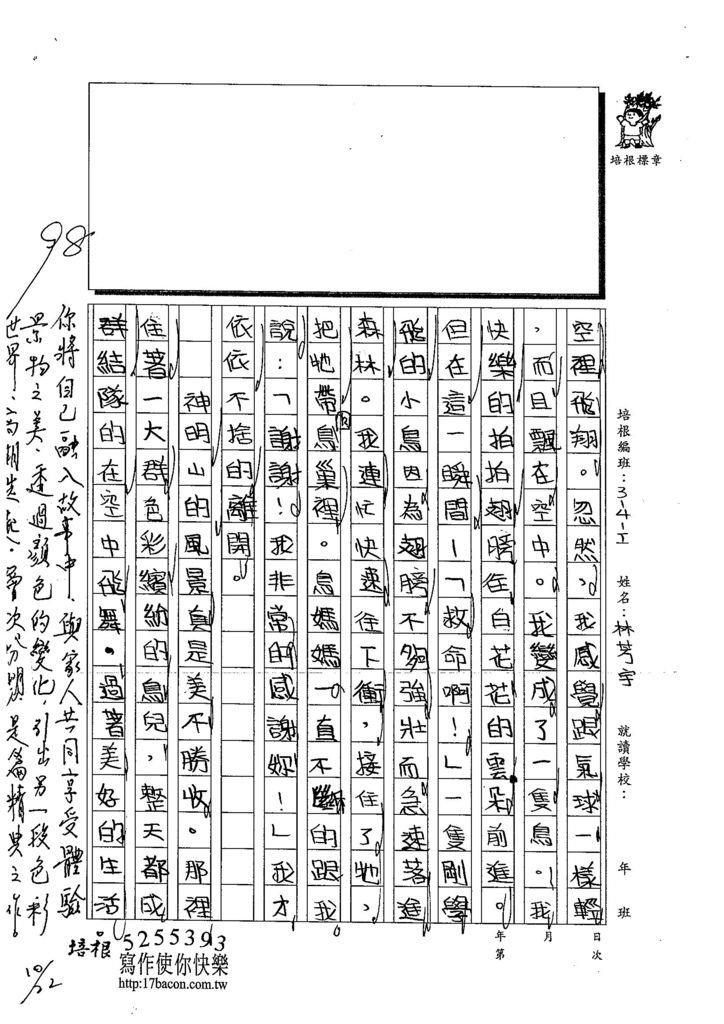 培根標章
培根編班：3-4-I 姓名：林芳宇 就讀學校： 年 班
空裡飛翔。忽然，我感覺跟氣球一樣輕
，而且飄在空中。我變成了一隻鳥。我
快樂的拍拍翅膀往白花花的雲朵前進。
但在這一瞬間—「救命啊！」一隻剛學
飛的小鳥因為翅膀不夠強壯而急速落進
森林。我連忙快速往下衝，接住了牠，
把牠帶回鳥巢裡。鳥媽媽一直不斷的跟我
說：「謝謝！我非常的感謝妳！」我才
依依不捨的離開。
神明山的風景真是美不勝收。那裡
住著一大群色彩繽紛的鳥兒，整天都成
群結隊的在空中飛舞。過著美好的生活
日 次
月
年 第
98
你將自己融入故事中，與家人共同享受體驗
景物之美，透過顏色的變化，引出另一段色彩
世界，層次分明是篇精典之作。
10/22
培根 5255393
寫作使你快樂
http:17bacon.com.tw